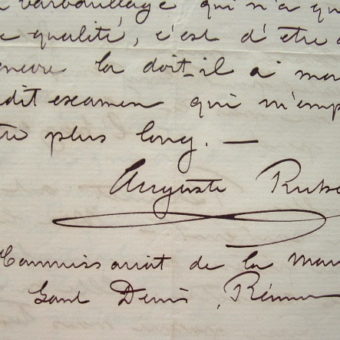 barbouillage qui n'a qu
qualité, c'est d'être
encore la doit-il à mau
dit examen qui m'emp
plus long. —
Auguste Rubé
Commissariat de la Mar
Saint Denis, Réunion